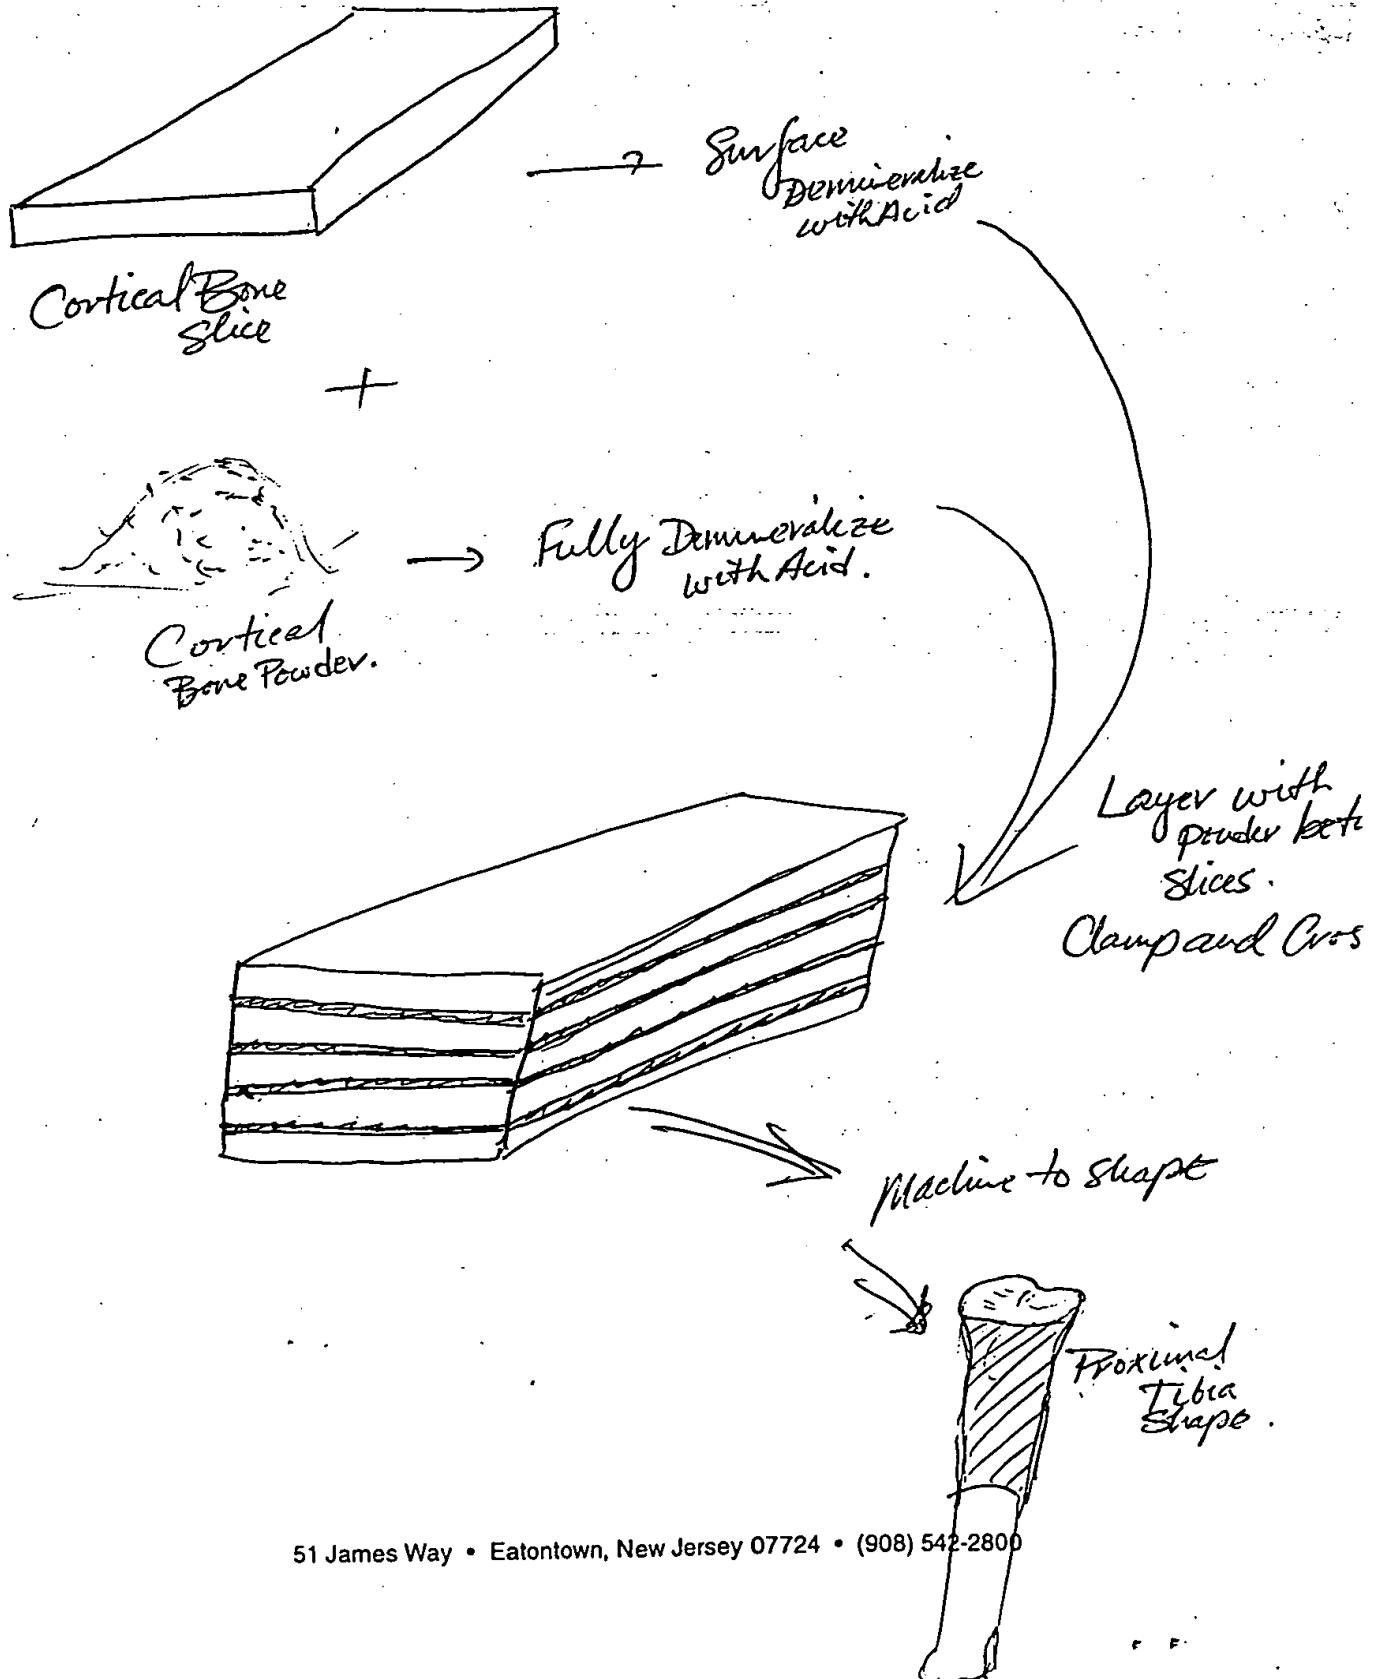 Surface
Demineralize
with Acid
Cortical Bone
Slice
+
Fully Demineralize
with Acid.
Cortical
Bone Powder.
Layer with
powder bet
slices.
Clamp and Cros
Machine to shape
Proximal
Tibia
Shape.
51 James Way • Eatontown, New Jersey 07724 • (908) 542-2800